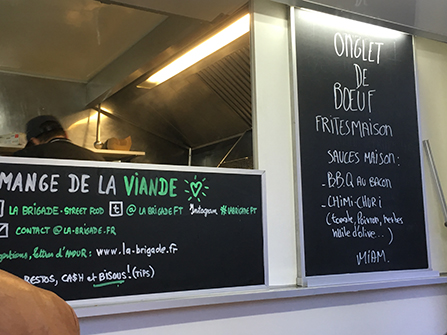 MANGE DE LA VIANDE
LA BRIGADE-STREET FOOD
@LA BRIGADE FT
Instagram
CONTACT @LA-BRIGADE.FR
lettres d'AMOUR : www.la-brigade.fr
RESTOS, CA$H et BISOUS! (TIPS)
ONGLET
DE
BŒUF
FRITES MAISON
SAUCES MAISON :
-B.B.Q AU BACON
-CHiMi-CHURi
huile d'olive...)
MIAM.